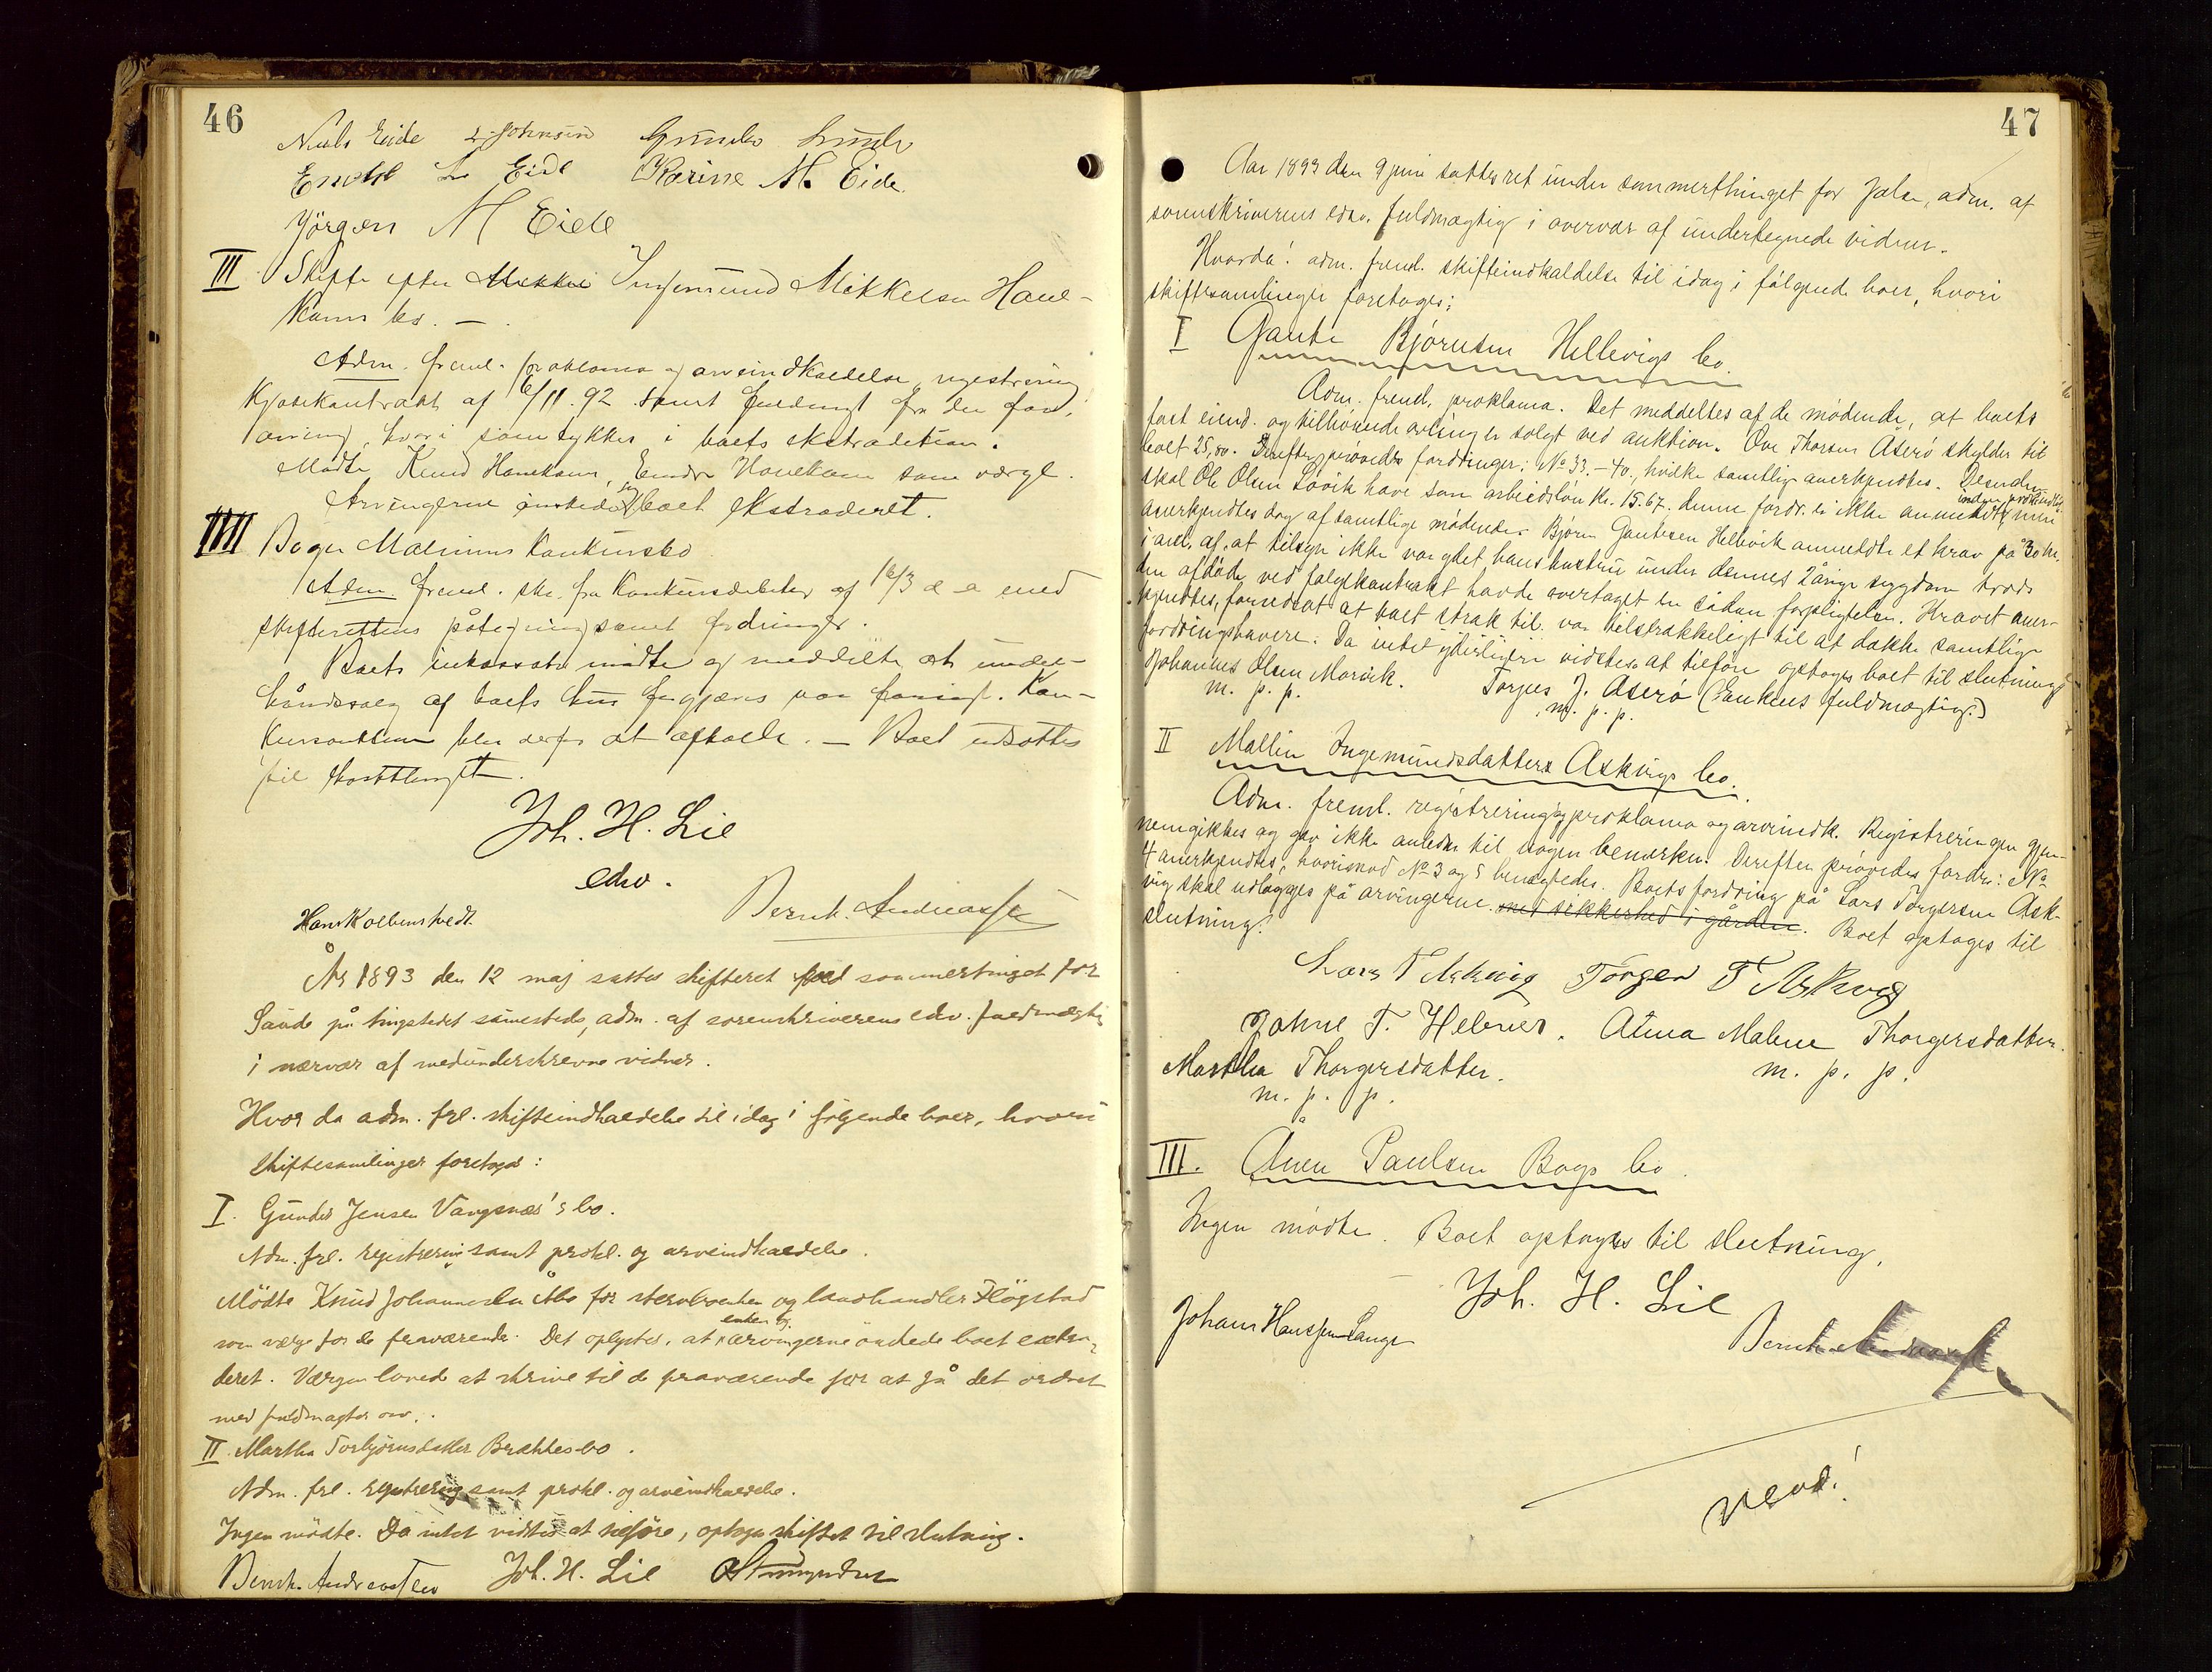 46
Niels Eide L. Johnsen Gunder
Enok L. Eide Karine M. Eide
Jörgen M Eide
III Skifte efter Mikkel Ingemund Mikkelsen Hane-
kams bo. —
Adm. freml. proklama og arveindkaldelse, registrering
Kjøbekontrakt af 6/11.92 samt fuldmagt fra den
arving, hvori samtykkes i boets ekstradition.
Mødte Knud Hanekam, Endre Hanekam som værge.
Arvingerne ønskede boet ekstraderet.
IIII Malinius konkursbo
Adm. freml. skr. fra konkursdebitor af 16/3 d a med
skifterettens påtegning samt fordringer.
Boets inkassator mødte og meddelte at under-
håndssalg af boets hus forgjæves var forsøgt. Kon-
kursauktion blev derfor at afholde. — Boet udsattes
til høsttinget.
Joh. H. Lie
edsv.
Hans Kolbenstvedt Bernh. Andreassen
År 1893 den 12 maj sattes skifteret ved sommertinget for
Saude på tingstedet sammesteds, adm. af sorenskriverens edsv. fuldmægtig
i nærvær af medunderskrevne vidner.
Hvor da adm. frl. skifteindkaldelse til idag i følgende boer, hvori
skiftesamlinger foretoges:
I. Gunder Jensen Vangsnæs's bo.
Adm. frl. registrering samt prokl. og arveindkaldelse.
Mødte Knud Johannesen Åbø for sterboenken og landhandler Fløgstad
som værge for de fraværende. Det oplystes, at enken og arvingerne ønskede boet extra-
deret. Værgen loved at skrive til de fraværende for at få det ordnet
med fuldmagter osv.
II. Martha Torbjørnsdatter Brækkes bo.
Adm. frl. registrering samt prokl. og arveindkaldelse.
Ingen mødte. Da intet vidstes at tilføre, optoges skiftet til slutning.
Bernh. Andreassen Joh. H. Lie
47
Aar 1893 den 9 juni sattes ret under sommerthinget for Jelse, adm. af
sorenskriverens edsv. fuldmægtig i overvær af undertegnede vidner.
Hvorda: adm. freml. skifteindkaldelse til idag i følgende boer, hvori
skiftesamlinger foretoges:
I Gaute Bjørnsen Hellevigs bo.
Adm. freml. proklama. Det meddeltes af de mødende, at boets
fast eiend. og tilhørende avling er solgt ved auktion. Ove Thorsen Aserø skylder til
boet 25,00. Derefter prøvedes fordringer: No 33–40, hvilke samtlige anerkjendtes. Desuden
skal Ole Olsen Løvik have som arbeidsløn Kr. 15.67. denne fordr. er ikke anmeldt inden proklamatid, men
anerkjendtes dog af samtlige mødende. Bjørn Gautesen Hellevik anmeldte et krav på 30 kr.
i anl. af, at tilsyn ikke var ydet hans hustru under dennes 2årige sygdom trods
den afdøde ved følgekontrakt havde overtaget en sådan forpligtelse. Kravet aner-
kjendtes, forudsat at boet strak til var tilstrækkeligt til at dække samtlige
fordringshavere. Da intet yderligere vidstes at tilføre optoges boet til slutning
Johannes Olsen Marvik. Torjus J. Aserø (Enkens fuldmægtig)
m. p. p. m. p. p.
II Mallin Ingemundsdatter Askvigs bo.
Adm. freml. registrering, proklama og arveindk. Registreringen gjen-
nemgikkes og gav ikke anledn. til nogen bemærkn. Derefter prøvedes fordr.: No
4 anerkjendtes, hvorimod No 3 og 5 benægtedes. Boets fordring på Lars Torgersen Ask-
vig skal udlægges på arvingerne med sikkerhed i gården. Boet optoges til
slutning.
Lars T Askvig Torger T Askvig
Johne T. Helenes. Anna Malene Thorgersdatter.
Martha Thorgersdatter. m. p. p.
m. p. p.
III. Anen Paulsen Bøgs bo.
Ingen mødte. Boet optoges til slutning.
Joh. H. Lie
Johan Hanssen Lange Bernh. Andreassen
vend!